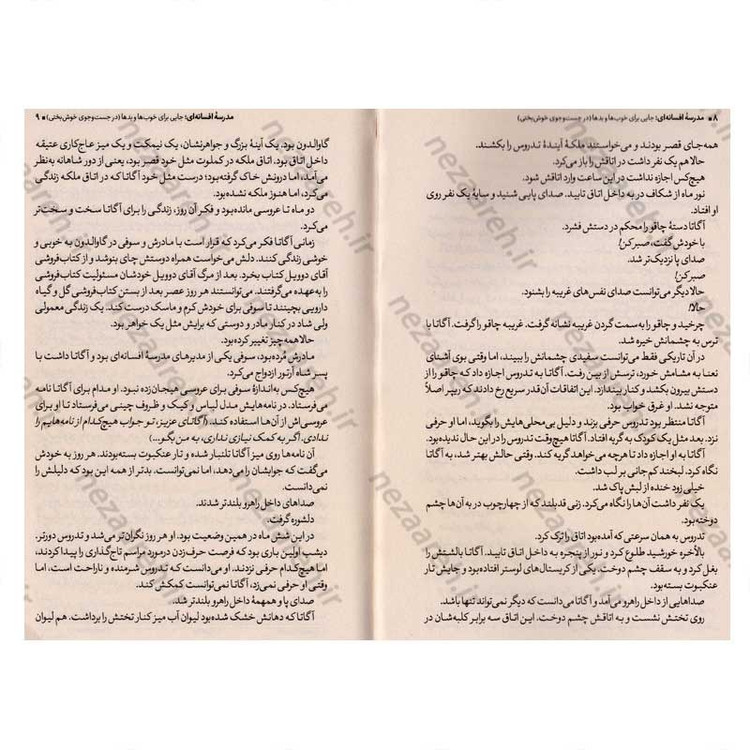 ۸ مدرسهٔ افسانه‌ای: جایی برای خوب‌ها و بدها (در جست‌وجوی خوش‌بختی)
همه‌جای قصر بودند و می‌خواستند ملکهٔ آیندهٔ تدروس را بکشند.
حالا هم یک نفر داشت در اتاقش را باز می‌کرد.
هیچ‌کس اجازه نداشت در این ساعت وارد اتاقش شود.
نور ماه از شکاف در به داخل اتاق تابید. صدای پایی شنید و سایهٔ یک نفر روی
او افتاد.
آگاتا دستهٔ چاقو را محکم در دستش فشرد.
با خودش گفت، صبر کن!
صدای پا نزدیک‌تر شد.
صبر کن!
حالا دیگر می‌توانست صدای نفس‌های غریبه را بشنود.
حالا!
چرخید و چاقو را به سمت گردن غریبه نشانه گرفت. غریبه چاقو را گرفت. آگاتا با
ترس به چشمانش خیره شد.
در آن تاریکی فقط می‌توانست سفیدی چشمانش را ببیند، اما وقتی بوی آشنای
نعنا به مشامش خورد، ترسش از بین رفت. آگاتا به تدروس اجازه داد که چاقو را از
دستش بیرون بکشد و کنار بیندازد. این اتفاقات آن‌قدر سریع رخ دادند که ریپر اصلاً
متوجه نشد. او غرق خواب بود.
آگاتا منتظر بود تدروس حرفی بزند و دلیل بی‌محلی‌هایش را بگوید، اما او حرفی
نزد. بعد مثل یک کودک به گریه افتاد. آگاتا هیچ‌وقت تدروس را در این حال ندیده‌بود.
آگاتا به او اجازه داد تا هرچه می‌خواهد گریه کند. وقتی حالش بهتر شد، به آگاتا
نگاه کرد. لبخند کم‌جانی بر لب داشت.
خیلی زود خنده از لبش پاک شد.
یک نفر داشت آن‌ها را نگاه می‌کرد. زنی قدبلند که از چهارچوب در به آن‌ها چشم
دوخته‌بود.
تدروس به همان سرعتی که آمده‌بود اتاق را ترک کرد.
بالأخره خورشید طلوع کرد و نور از پنجره به داخل اتاق تابید. آگاتا بالشتش را
بغل کرد و به سقف چشم دوخت. یکی از کریستال‌های لوستر افتاده‌بود و جایش تار
عنکبوت بسته‌بود.
صداهایی از داخل راهرو می‌آمد و آگاتا می‌دانست که دیگر نمی‌تواند تنها باشد.
روی تختش نشست و به اتاقش چشم دوخت. این اتاق سه برابر کلبه‌شان در
مدرسهٔ افسانه‌ای: جایی برای خوب‌ها و بدها (در جست‌وجوی خوش‌بختی) ۹
گاوالدون بود. یک آینهٔ بزرگ و جواهرنشان، یک نیمکت و یک میز عاج‌کاری عتیقه
داخل اتاق بود. اتاق ملکه در کملوت مثل خود قصر بود، یعنی از دور شاهانه به‌نظر
می‌آمد، اما درونش خاک گرفته‌بود؛ درست مثل خود آگاتا که در اتاق ملکه زندگی
می‌کرد، اما هنوز ملکه نشده‌بود.
دو ماه تا عروسی مانده‌بود و فکر آن روز، زندگی را برای آگاتا سخت و سخت‌تر
می‌کرد.
زمانی آگاتا فکر می‌کرد که قرار است با مادرش و سوفی در گاوالدون به خوبی و
خوشی زندگی کنند. دلش می‌خواست همراه دوستش چای بنوشد و از کتاب‌فروشی
آقای دوویل کتاب بخرد. بعد از مرگ آقای دوویل خودشان مسئولیت کتاب‌فروشی
را به‌عهده می‌گرفتند. می‌توانستند هر روز عصر بعد از بستن کتاب‌فروشی گل و گیاه
دارویی بچینند تا سوفی برای خودش کرم و ماسک درست کند. یک زندگی معمولی
ولی شاد در کنار مادر و دوستی که برایش مثل یک خواهر بود.
حالا همه چیز تغییر کرده‌بود.
مادرش مُرده‌بود، سوفی یکی از مدیرهای مدرسهٔ افسانه‌ای بود و آگاتا داشت با
پسر شاه آرتور ازدواج می‌کرد.
هیچ‌کس به‌اندازهٔ سوفی برای عروسی هیجان‌زده نبود. او مدام برای آگاتا نامه
می‌فرستاد. در نامه‌هایش مدل لباس و کیک و ظروف چینی می‌فرستاد تا او برای
عروسی‌اش از آن‌ها استفاده کند. (آگاتای عزیز، تو جواب هیچ‌کدام از نامه‌هایم را
ندادی. اگر به کمک نیازی نداری، به من بگو...)
آن نامه‌ها روی میز آگاتا تلنبار شده و تار عنکبوت بسته‌بودند. هر روز به خودش
می‌گفت که جوابشان را می‌دهد، اما نمی‌توانست. بدتر از همه این بود که دلیلش را
نمی‌دانست.
صداهای داخل راهرو بلندتر شدند.
دلشوره گرفت.
در این شش ماه در همین وضعیت بود. او هر روز نگران‌تر می‌شد و تدروس دورتر.
دیشب اولین باری بود که فرصت حرف‌زدن درمورد مراسم تاج‌گذاری را پیدا کردند،
اما هیچ‌کدام حرفی نزدند. او می‌دانست که تدروس شرمنده و ناراحت است، اما
وقتی او حرفی نمی‌زد، آگاتا نمی‌توانست کمکش کند.
صدای پا و همهمهٔ داخل راهرو بلندتر شد.
آگاتا که دهانش خشک شده‌بود لیوان آب میز کنار تختش را برداشت. هم لیوان
nezaareh.ir